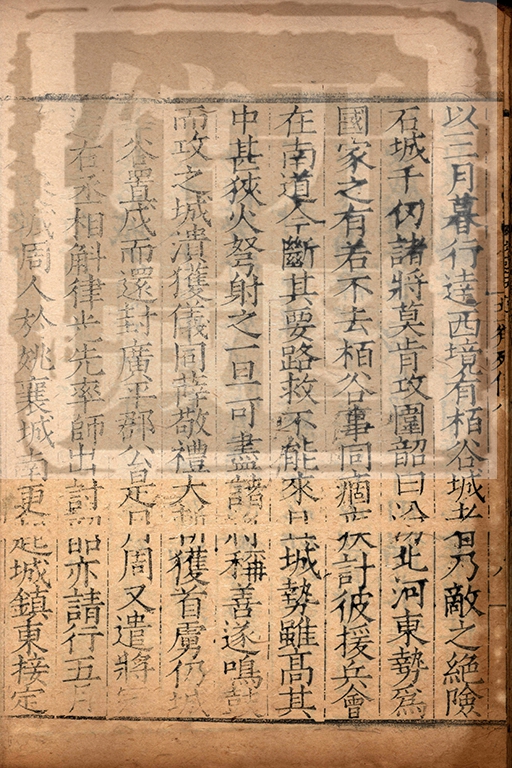 以三月暮行達西境有栢谷城者乃敵之絶險
石城千仞諸將莫肯攻圍韶曰汾北河東勢爲
國家之有若不去栢谷事同痼疾計彼援兵會
在南道今斷其要路救不能來且城勢雖高其
中甚狹火弩射之一旦可盡諸將稱善遂鳴鼓
而攻之城潰獲儀同薛敬禮大斬獲首虜仍城
谷置戍而還封廣平郡公是月周又遣將
右丞相斛律光先率師出討韶亦請行五月
城周人於姚襄城南更起城鎮東接定